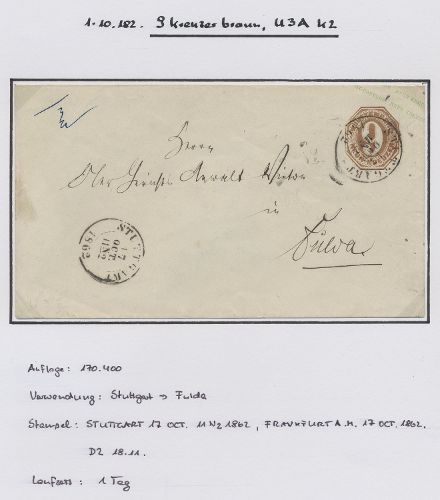 1.10.182. 9 Kreuzer braun, U3A K2
Herrn
Ober Gerichts Anwalt
in
Fulda
STUTTGART
17
OCT.
11N2
1862
Auflage: 170.400
Verwendung: Stuttgart → Fulda
Stempel: STUTTGART 17 OCT. 11 N2 1862, FRANKFURT A.M. 17 OCT. 1862.
D2 18.11.
Laufzeit: 1 Tag